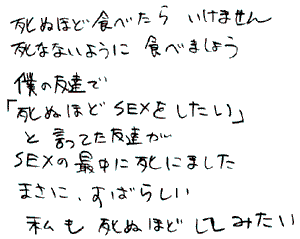 死ぬほど食べたら いけません
死なないように 食べましょう
僕の友達で
「死ぬほど SEXをしたい」
と言ってた友達が
SEXの最中に死にました
まさに、すばらしい
私も 死ぬほど してみたい